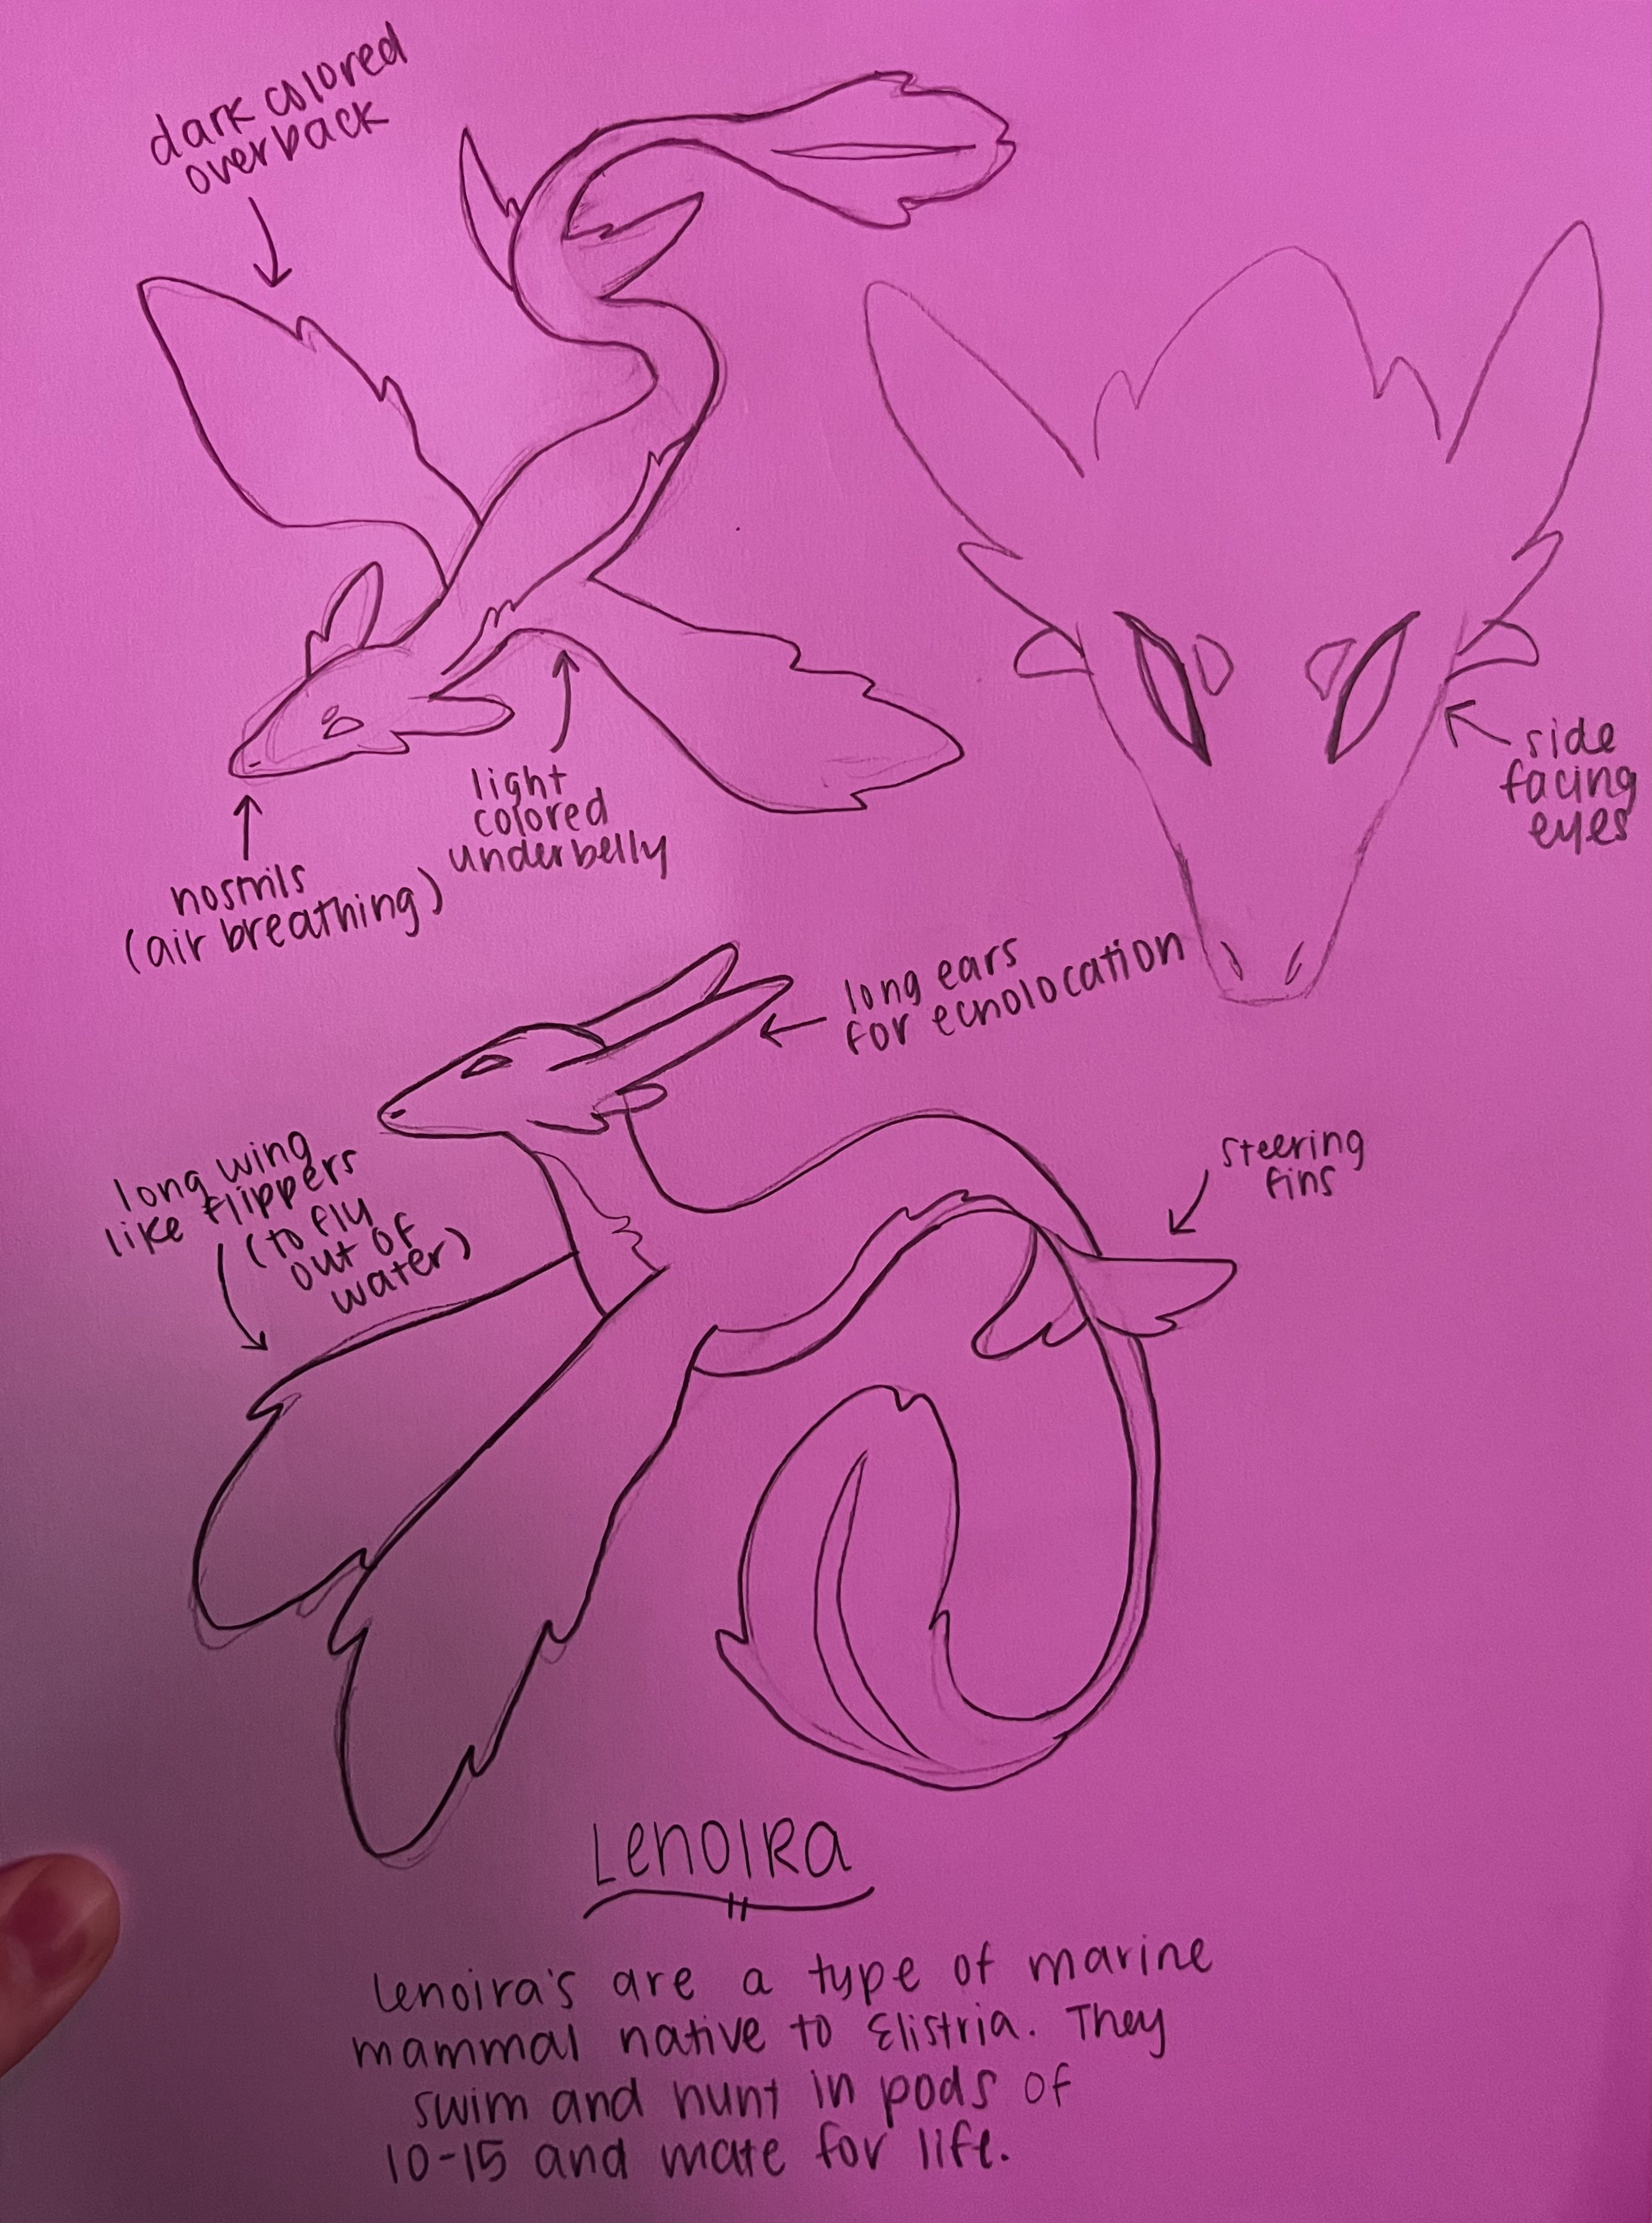 dark colored
overback
nostrils
(air breathing)
light
colored
underbelly
side
facing
eyes
long ears
for echolocation
long wing
like flippers
(to fly
out of
water)
steering
fins
Lenoira
Lenoira's are a type of marine
mammal native to Elistria. They
swim and hunt in pods of
10-15 and mate for life.